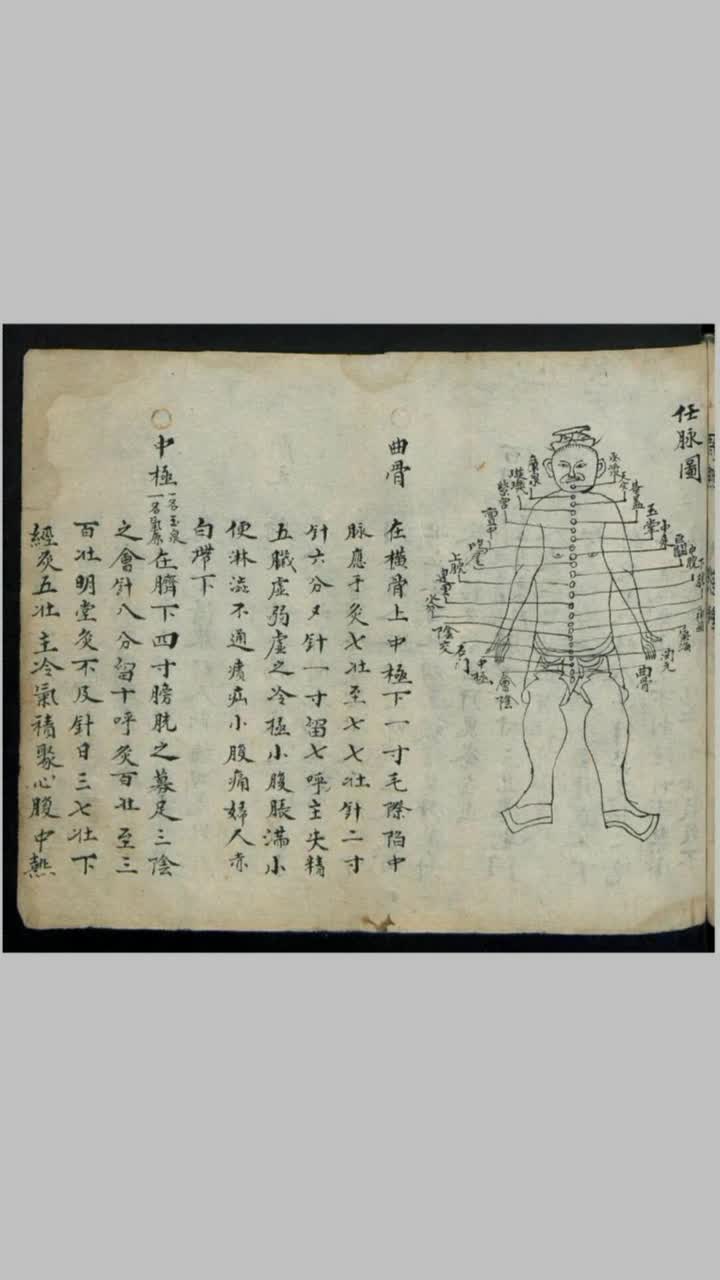 任脉圖
承漿
廉泉
天突
璇璣
華盖
紫宮
玉堂
膻中
中庭
鳩尾
巨闕
上脘
中脘
建里
下脘
水分
陰交
氣海
石门
關元
中極
曲骨
會陰
曲骨
在橫骨上中極下一寸毛際陷中
脉應手灸七壯至七七壯针二寸
针六分又针一寸留七呼主失精
五臟虛弱虛乏冷極小腹脹滿小
便淋澁不通㿉疝小腹痛婦人赤
白帶下
中極
一名玉泉
一名氣原
在臍下四寸膀胱之募足三陰
之會针八分留十呼灸百壯至三
百壯明堂灸不及针日三七壯下
經灸五壯主冷氣積聚心腹中熱